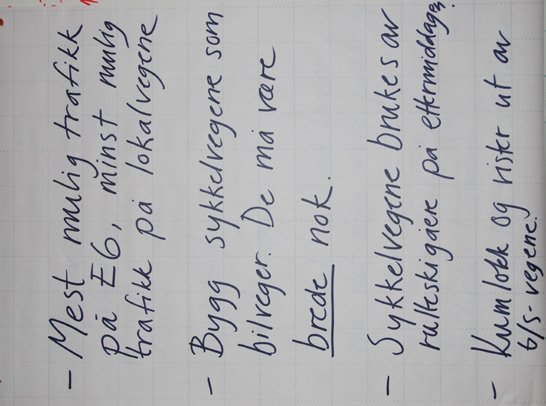 - Mest mulig trafikk
på E6, minst mulig
trafikk på lokalvegene
- Bygg sykkelvegene som
bilveger. De må være
brede nok.
- Sykkelvegene brukes av
rulleskigåere på ettermiddagen
- Kumlokk og rister ut av
t/s-vegene.